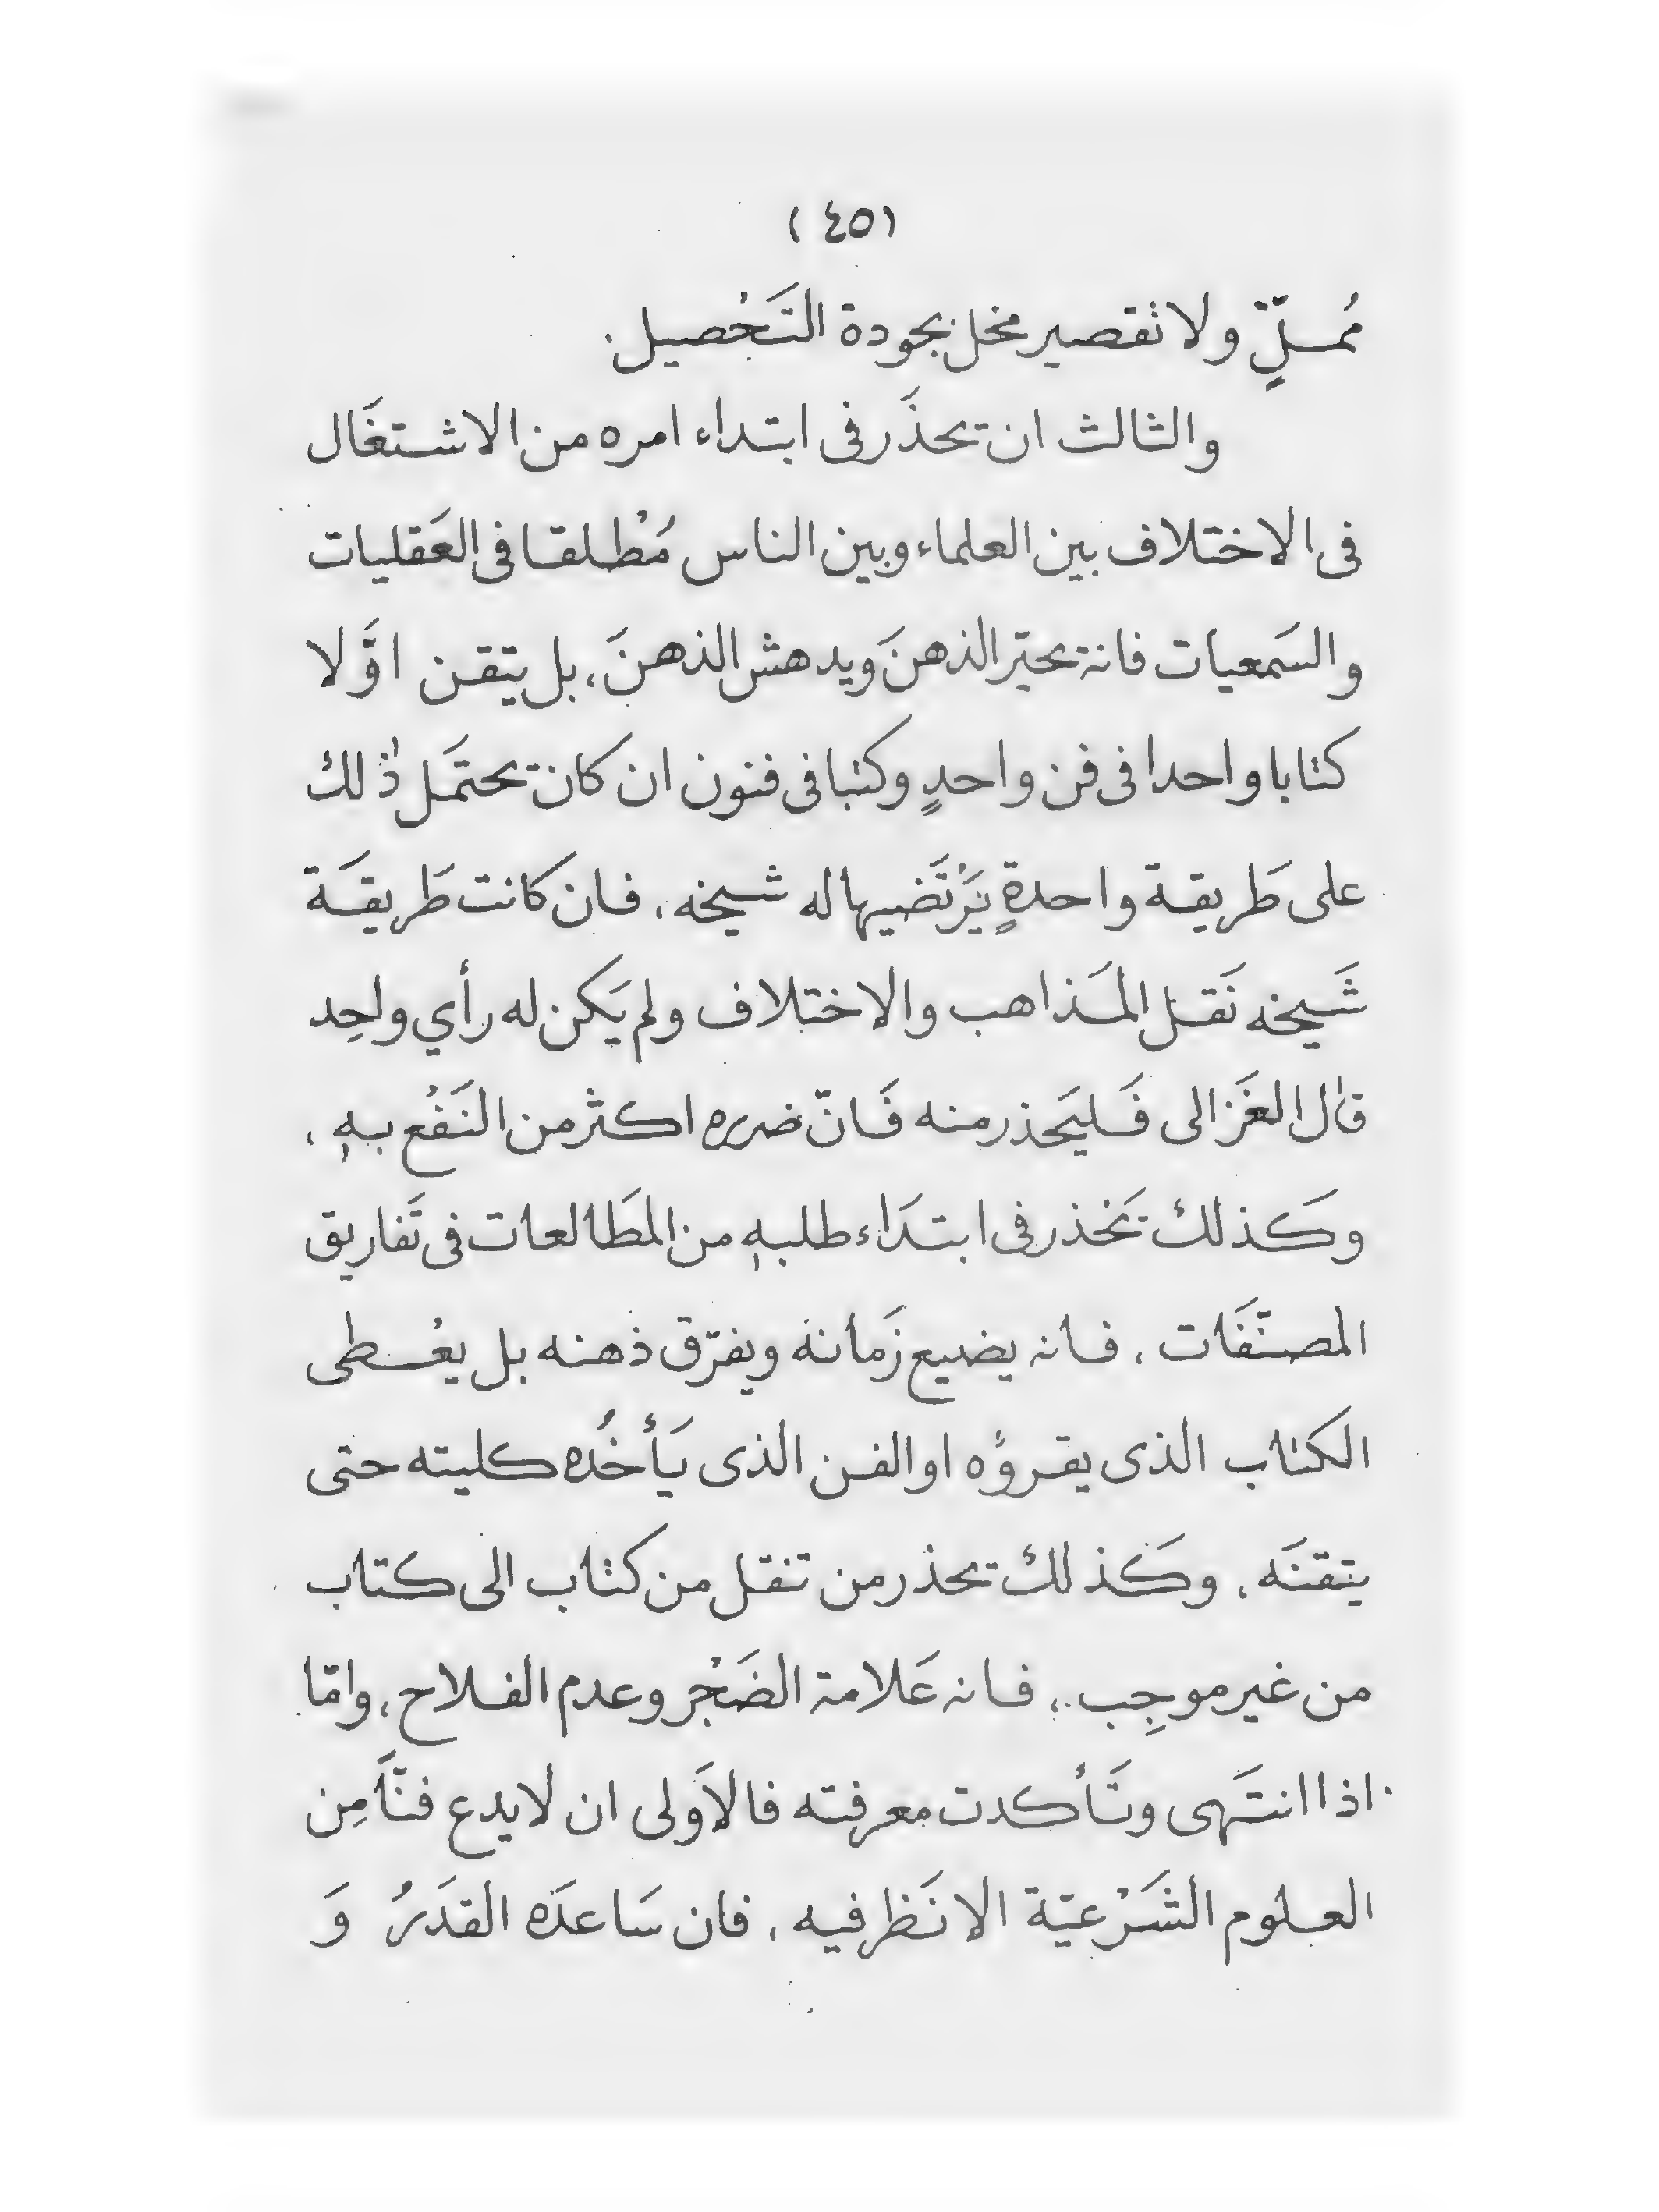 (٤٥)
مُمـلٍّ ولا تقصير مخل بجودة التَحْصيل.
والثالث ان يحذَر فى ابتداء امره من الاشتغَال
فى الاختلاف بين العلماء وبين الناس مُطْلقا فى العَقليات
والسَمعيات فانه يحيّر الذهنَ ويدهش الذهنَ، بل يتقن اوَّلا
كتابا واحدا فى فن واحدٍ وكتبا فى فنون ان كان يحتمَل ذٰلك
على طَريقة واحدةٍ يَرْتَضيها له شيخه، فان كانت طَريقَة
شَيخه نَقل المَذاهب والاختلاف ولم يَكن له رأي واحِد
قال الغَزالى فَليَحذر منه فَانّ ضرره اكثر من النَفْع بهٖ،
وكَذلك يَحذر فى ابتدَاء طلبهٖ من المطَالعات فى تَفاريق
المصنّفَات، فانه يضيع زَمانه ويفرّق ذهنه بل يعْطى
الكتاب الذى يقرؤه او الفن الذى يَأخُذه كليته حتى
يتقنَه، وكَذلك يحذر من تنقل من كتاب الى كتاب
من غير موجِب، فانه عَلامة الضَجْر وعدم الفلاح، وامّا
اذا انتَهى وتَأكدت معرفته فالاَولى ان لا يدع فنّاً مِن
العلوم الشَرْعيّة الا نَظر فيه، فان سَاعدَه القدَرُ وَ